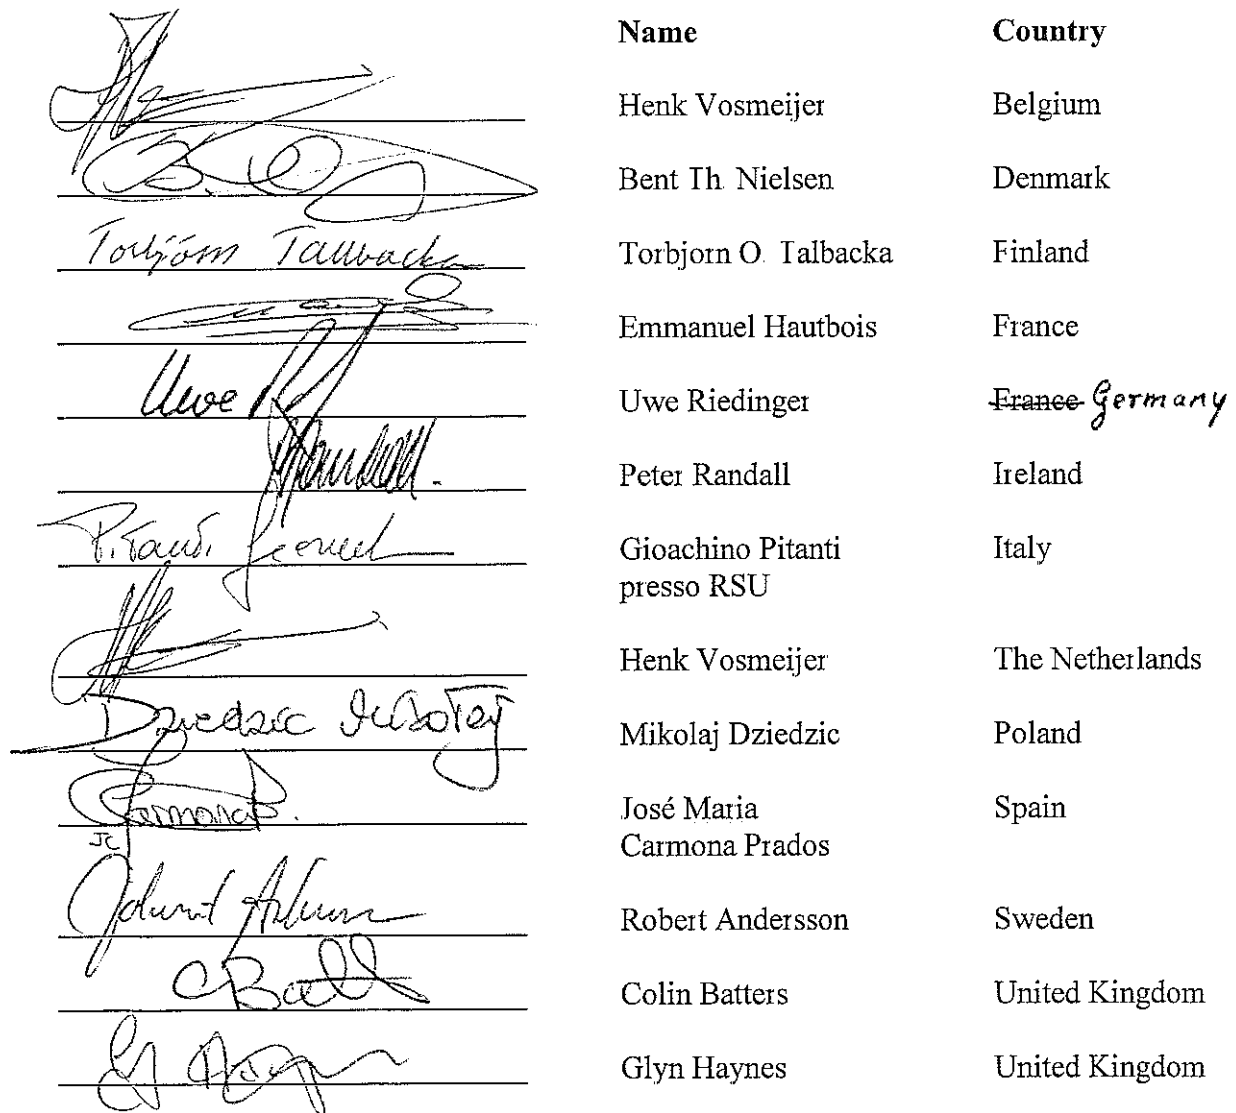 Name Country
Henk Vosmeijer Belgium
Bent Th. Nielsen Denmark
Torbjörn Tallbacka Torbjorn O. Talbacka Finland
Emmanuel Hautbois France
Uwe Uwe Riedinger France Germany
Randall. Peter Randall Ireland
Gioachino Pitanti Italy
presso RSU
Henk Vosmeijer The Netherlands
Dziedzic Mikołaj Mikolaj Dziedzic Poland
Carmona José Maria Spain
Carmona Prados
JC
Robert Andersson Sweden
CBatt Colin Batters United Kingdom
Glyn Haynes United Kingdom